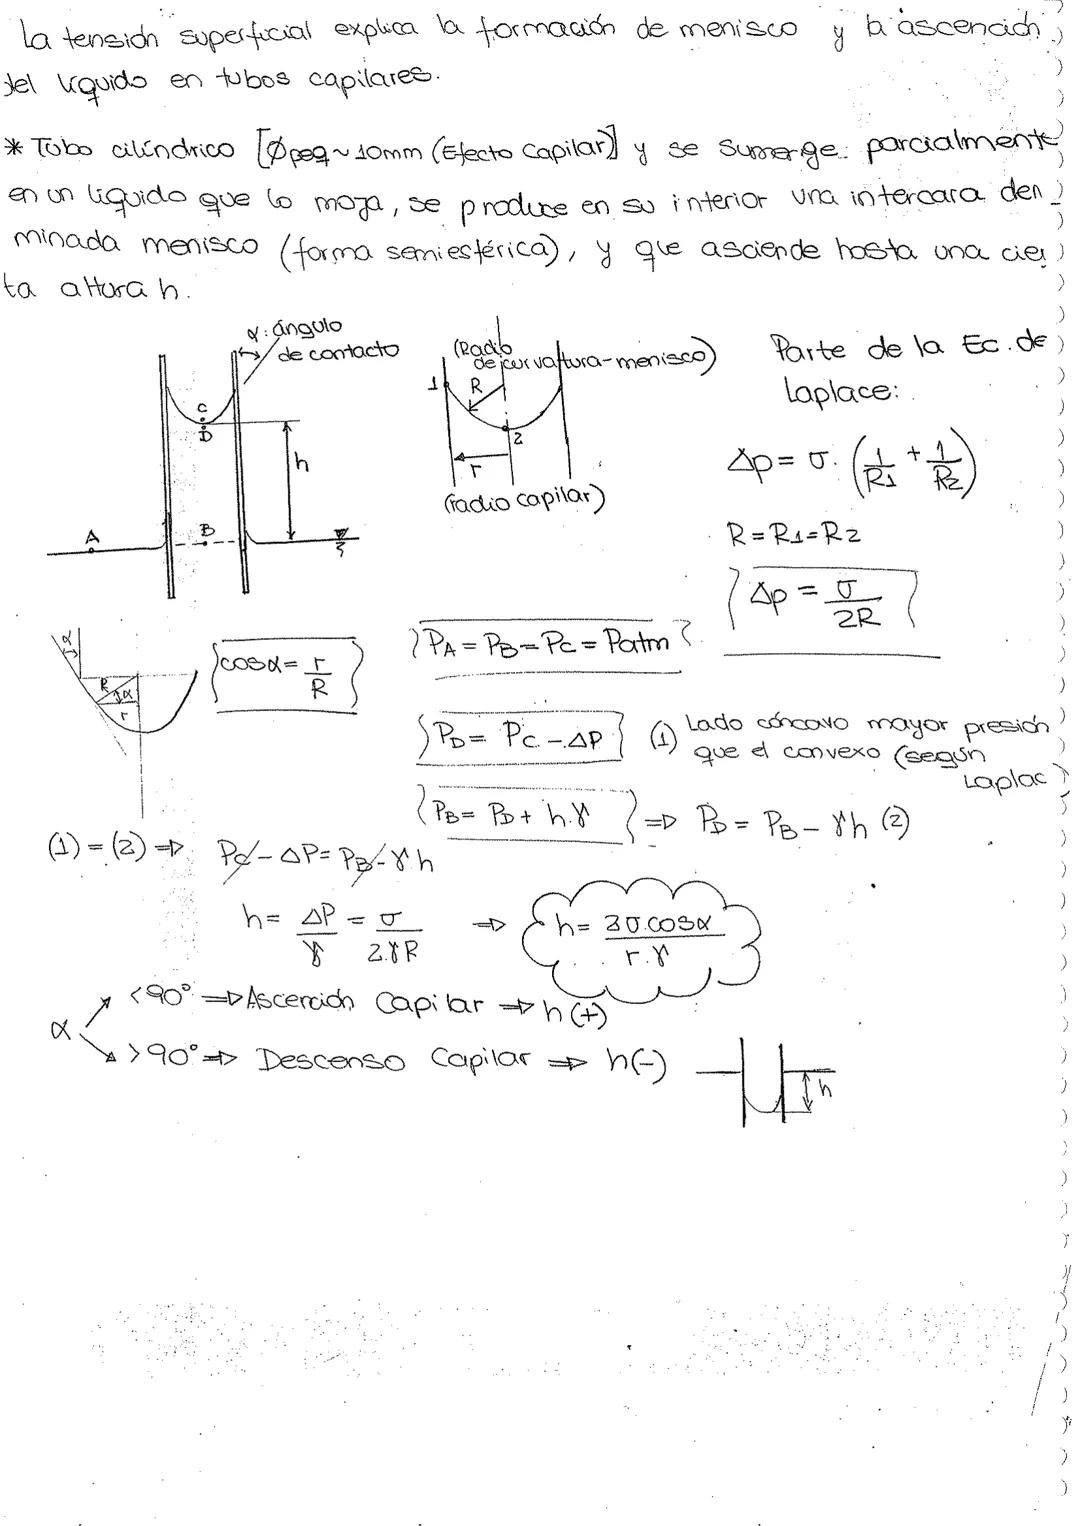 La tensión superficial explica la formación de menisco y la ascención
del líquido en tubos capilares.
* Tubo cilíndrico [Ø peq ~ 10mm (Efecto Capilar)] y se sumerge parcialmente
en un líquido que lo moja, se produce en su interior una intercara den
minada menisco (forma semiesférica), y que asciende hasta una cier
ta altura h.
α: ángulo
de contacto
C
D
h
A
B
(Radio
de curvaftura-menisco)
1
R
2
r
(radio capilar)
Parte de la Ec. de
Laplace:
Δp = σ. (1/R1 + 1/R2)
R = R1 = R2
Δp = σ/2R
α
R
α
r
cosα = r/R
PA = PB = PC = Patm
PD = PC - ΔP (1) Lado cóncavo mayor presión
que el convexo (según
Laplac
PB = PD + h.γ ⇒ PD = PB - γh (2)
(1) = (2) ⇒ PC - ΔP = PB - γh
h = ΔP/γ = σ/2.γR ⇒ h = 3σ.cosα/r.γ
α
<90° ⇒ Ascención Capilar ⇒ h(+)
>90° ⇒ Descenso Capilar ⇒ h(-)
h